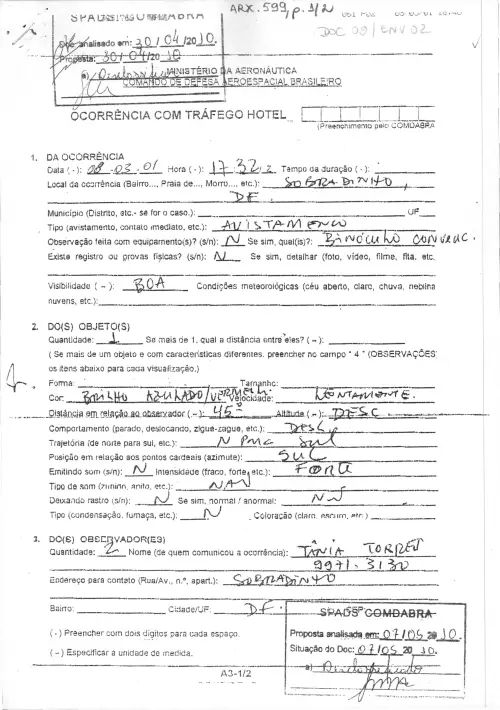 ARX. 599, p. 1/2
DOC 09/ENV 02
SPADS
Doc analisado em: 30/04/2010.
Proposta: 30/04/2010
a) Desclassificado
MINISTÉRIO DA AERONÁUTICA
COMANDO DE DEFESA AEROESPACIAL BRASILEIRO
OCORRÊNCIA COM TRÁFEGO HOTEL
(Preenchimento pelo COMDABRA
1. DA OCORRÊNCIA
Data (·): 08.03.01 Hora (·): 17:32 z Tempo da duração (·):
Local da ocorrência (Bairro..., Praia de..., Morro..., etc.): SOBRADINHO,
DF.
Município (Distrito, etc.- se for o caso.): UF
Tipo (avistamento, contato imediato, etc.): AVISTAMENTO
Observação feita com equipamento(s)? (s/n): N Se sim, qual(is)?: BINÓCULO CONVUC.
Existe registro ou provas físicas? (s/n): N Se sim, detalhar (foto, vídeo, filme, fita, etc.
Visibilidade ( ~ ): BOA Condições meteorológicas (céu aberto, claro, chuva, neblina
nuvens, etc.):
2. DO(S) OBJETO(S)
Quantidade: 1 Se mais de 1, qual a distância entre eles? ( ~ ):
( Se mais de um objeto e com características diferentes, preencher no campo " 4 " (OBSERVAÇÕES
os itens abaixo para cada visualização.)
Forma: Tamanho:
Cor: BRILHO AZULADO/VERMELH. Velocidade: LENTAMENTE.
Distância em relação ao observador ( ~ ): 45° Altitude ( ~ ): DESC
Comportamento (parado, deslocando, zigue-zague, etc.): DESC.
Trajetória (de norte para sul, etc.): N PARA SUL
Posição em relação aos pontos cardeais (azimute): SUL
Emitindo som (s/n): N Intensidade (fraco, forte, etc.): FORTE
Tipo de som (zunino, apito, etc.): NÃO
Deixando rastro (s/n): N Se sim, normal / anormal:
Tipo (condensação, fumaça, etc.): N . Coloração (claro, escuro, etc.)
3. DO(S) OBSERVADOR(ES)
Quantidade: 2 Nome (de quem comunicou a ocorrência): TÂNIA TORRES
9971-3130
Endereço para contato (Rua/Av., n.º, apart.): SOBRADINHO
Bairro: Cidade/UF: DF.
(·) Preencher com dois dígitos para cada espaço.
(~) Especificar a unidade de medida.
A3-1/2
SPADS COMDABRA
Proposta analisada em: 07/05 2010.
Situação do Doc: 07/05 2010.
a) Desclassificado